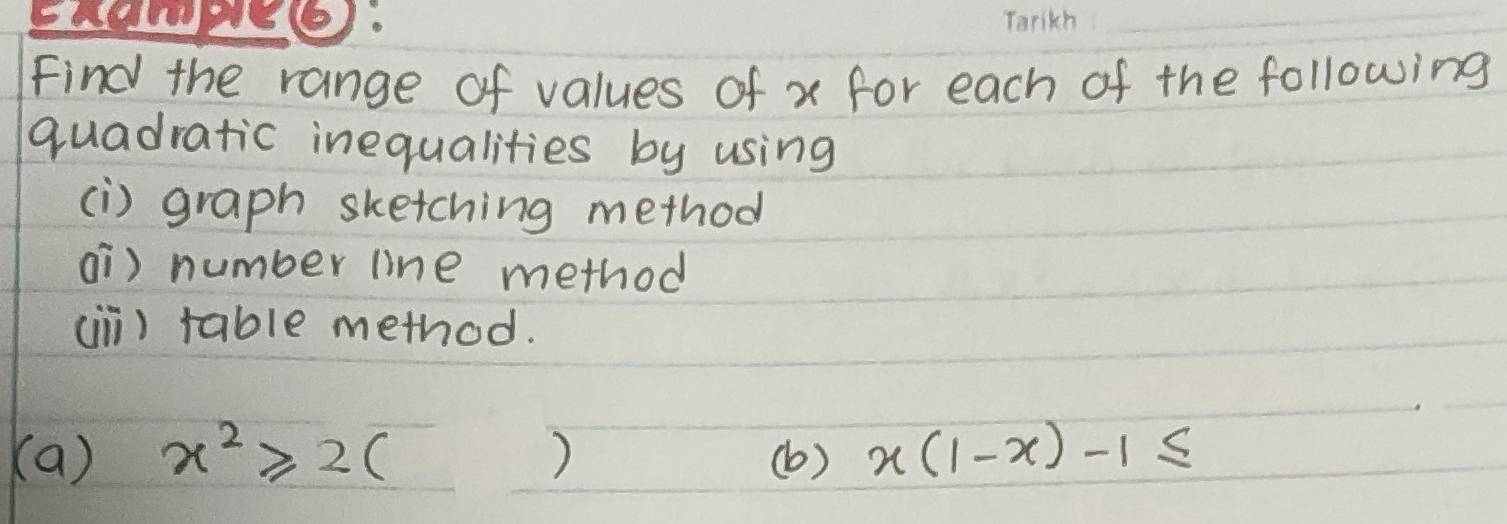 Example 6:
Tarikh :
Find the range of values of x for each of the following
quadratic inequalities by using
(i) graph sketching method
(ii) number line method
(iii) table method.
(a) x² ⩾ 2( )
(b) x(1-x) -1 ≤